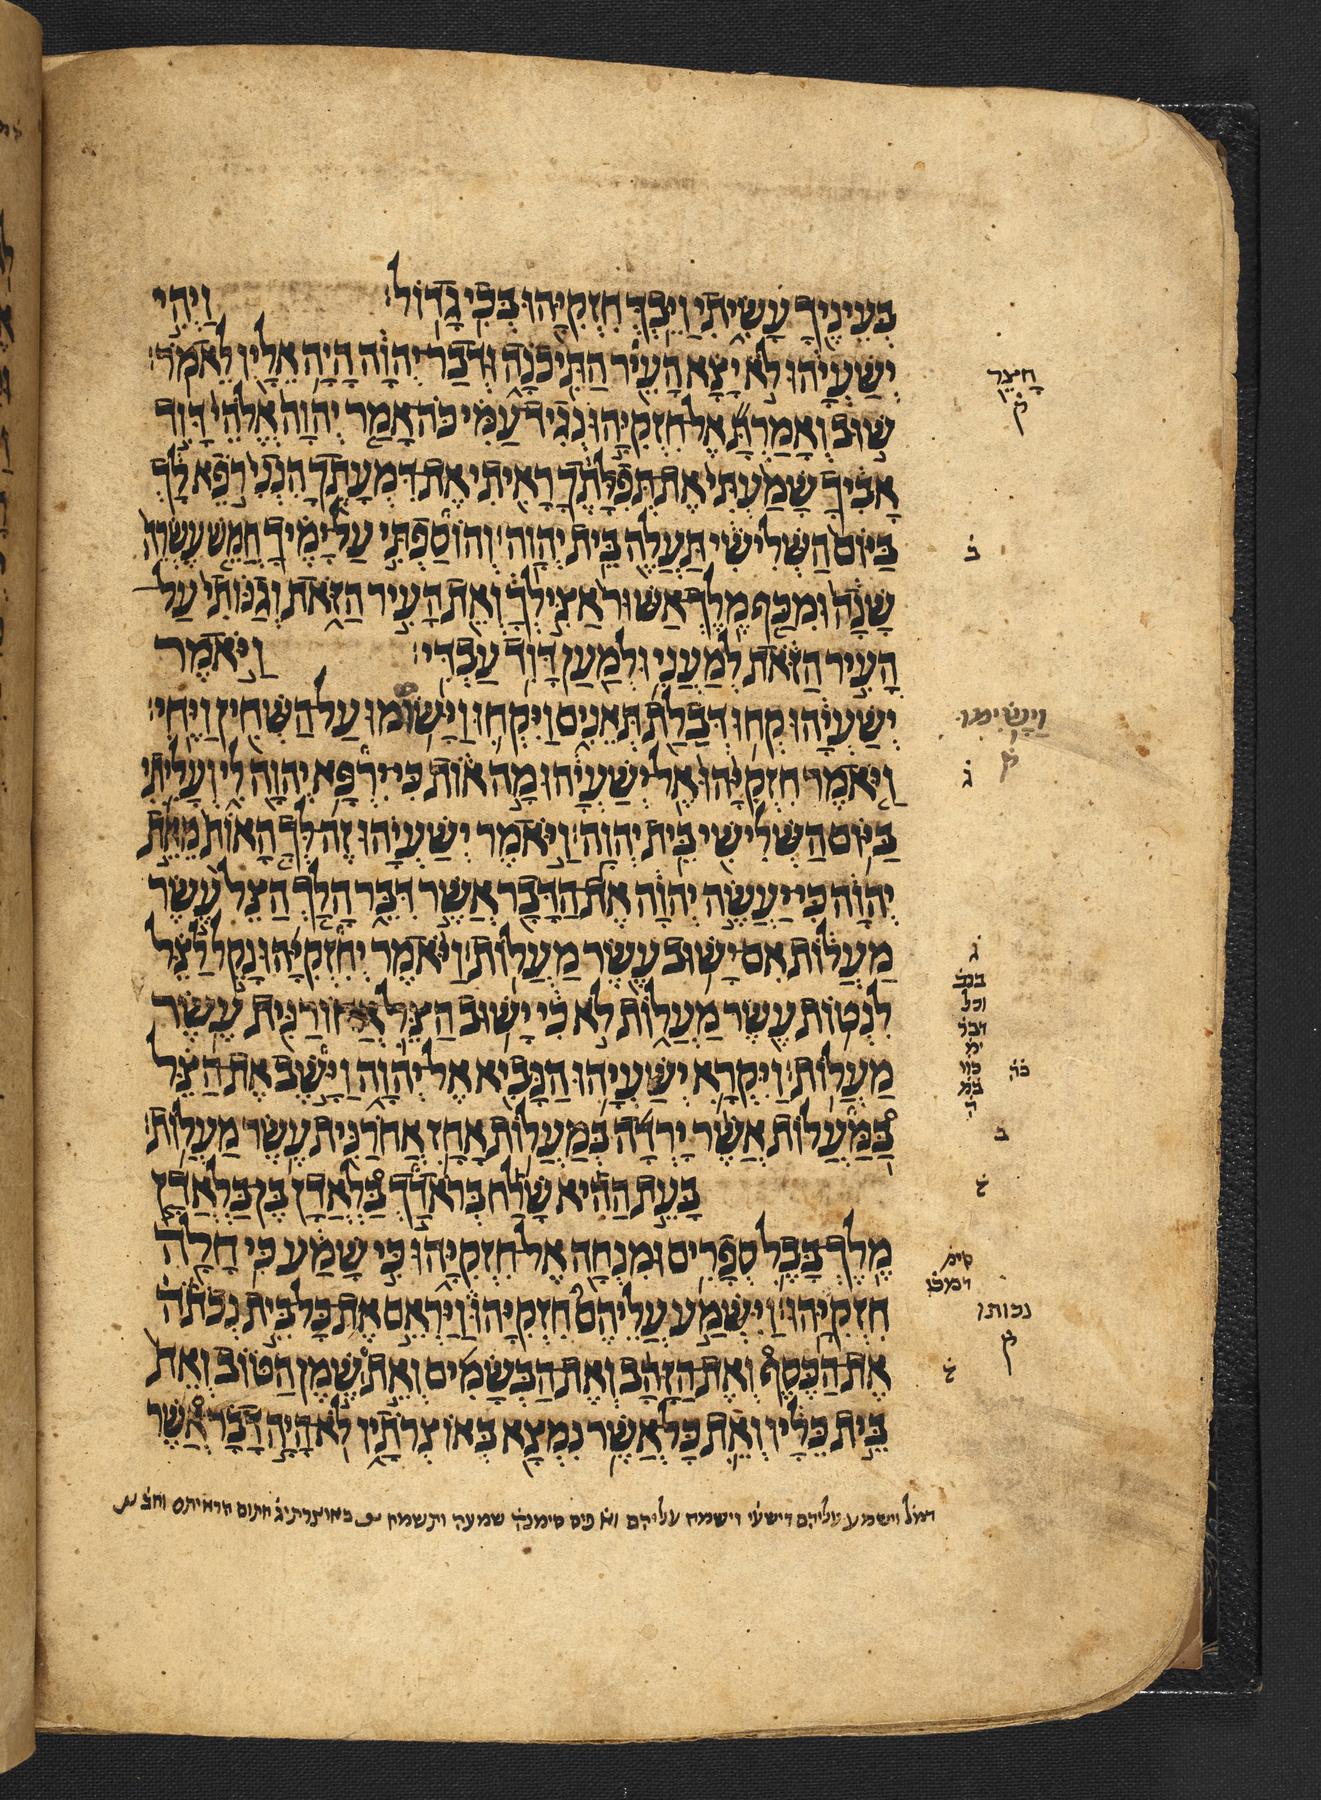 בְּעֵינֶיךָ עָשִׂיתִי וַיֵּבְךְּ חִזְקִיָּהוּ בְּכִי גָדוֹל׃ וַיְהִי
יְשַׁעְיָהוּ לֹא יָצָא הָעִיר הַתִּיכֹנָה וּדְבַר יְהוָה הָיָה אֵלָיו לֵאמֹר׃
שׁוּב וְאָמַרְתָּ אֶל חִזְקִיָּהוּ נְגִיד עַמִּי כֹּה אָמַר יְהוָה אֱלֹהֵי דָּוִד
אָבִיךָ שָׁמַעְתִּי אֶת תְּפִלָּתֶךָ רָאִיתִי אֶת דִּמְעָתֶךָ הִנְנִי רֹפֶא לָךְ
בַּיּוֹם הַשְּׁלִישִׁי תַּעֲלֶה בֵּית יְהוָה׃ וְהוֹסַפְתִּי עַל יָמֶיךָ חֲמֵשׁ עֶשְׂרֵה
שָׁנָה וּמִכַּף מֶלֶךְ אַשּׁוּר אַצִּילְךָ וְאֵת הָעִיר הַזֹּאת וְגַנּוֹתִי עַל
הָעִיר הַזֹּאת לְמַעֲנִי וּלְמַעַן דָּוִד עַבְדִּי׃ וַיֹּאמֶר
יְשַׁעְיָהוּ קְחוּ דְּבֶלֶת תְּאֵנִים וַיִּקְחוּ וַיָּשִׂומוּ עַל הַשְּׁחִין וַיֶּחִי׃
וַיֹּאמֶר חִזְקִיָּהוּ אֶל יְשַׁעְיָהוּ מָה אוֹת כִּי יִרְפָּא יְהוָה לִי וְעָלִיתִי
בַּיּוֹם הַשְּׁלִישִׁי בֵּית יְהוָה׃ וַיֹּאמֶר יְשַׁעְיָהוּ זֶה לְּךָ הָאוֹת מֵאֵת
יְהוָה כִּי יַעֲשֶׂה יְהוָה אֶת הַדָּבָר אֲשֶׁר דִּבֵּר הָלַךְ הַצֵּל עֶשֶׂר
מַעֲלוֹת אִם יָשׁוּב עֶשֶׂר מַעֲלוֹת׃ וַיֹּאמֶר יְחִזְקִיָּהוּ נָקֵל לַצֵּל
לִנְטוֹת עֶשֶׂר מַעֲלוֹת לֹא כִי יָשׁוּב הַצֵּל אֲחוֹרַנִּית עֶשֶׂר
מַעֲלוֹת׃ וַיִּקְרָא יְשַׁעְיָהוּ הַנָּבִיא אֶל יְהוָה וַיָּשֶׁב אֶת הַצֵּל
בַּמַּעֲלוֹת אֲשֶׁר יָרְדָה בְּמַעֲלוֹת אָחָז אֲחֹרַנִּית עֶשֶׂר מַעֲלוֹת׃
בָּעֵת הַהִיא שָׁלַח בְּרֹאדַךְ בַּלְאֲדָן בֶּן בַּלְאֲדָן
מֶלֶךְ בָּבֶל סְפָרִים וּמִנְחָה אֶל חִזְקִיָּהוּ כִּי שָׁמַע כִּי חָלָה
חִזְקִיָּהוּ׃ וַיִּשְׁמַע עֲלֵיהֶם חִזְקִיָּהוּ וַיַּרְאֵם אֶת כָּל בֵּית נְכֹתֹה
אֶת הַכֶּסֶף וְאֶת הַזָּהָב וְאֶת הַבְּשָׂמִים וְאֵת שֶׁמֶן הַטּוֹב וְאֵת
בֵּית כֵּלָיו וְאֵת כָּל אֲשֶׁר נִמְצָא בְּאוֹצְרֹתָיו לֹא הָיָה דָבָר אֲשֶׁר
חָצֵר
ק
ב
וַיָּשִׂימוּ
ק
ג
ג
וכל
דבר
ב
נכותו
ק
וישמע עליהם דישעי וישמח עליהם שמעה ותשמח באוצרתי חתום